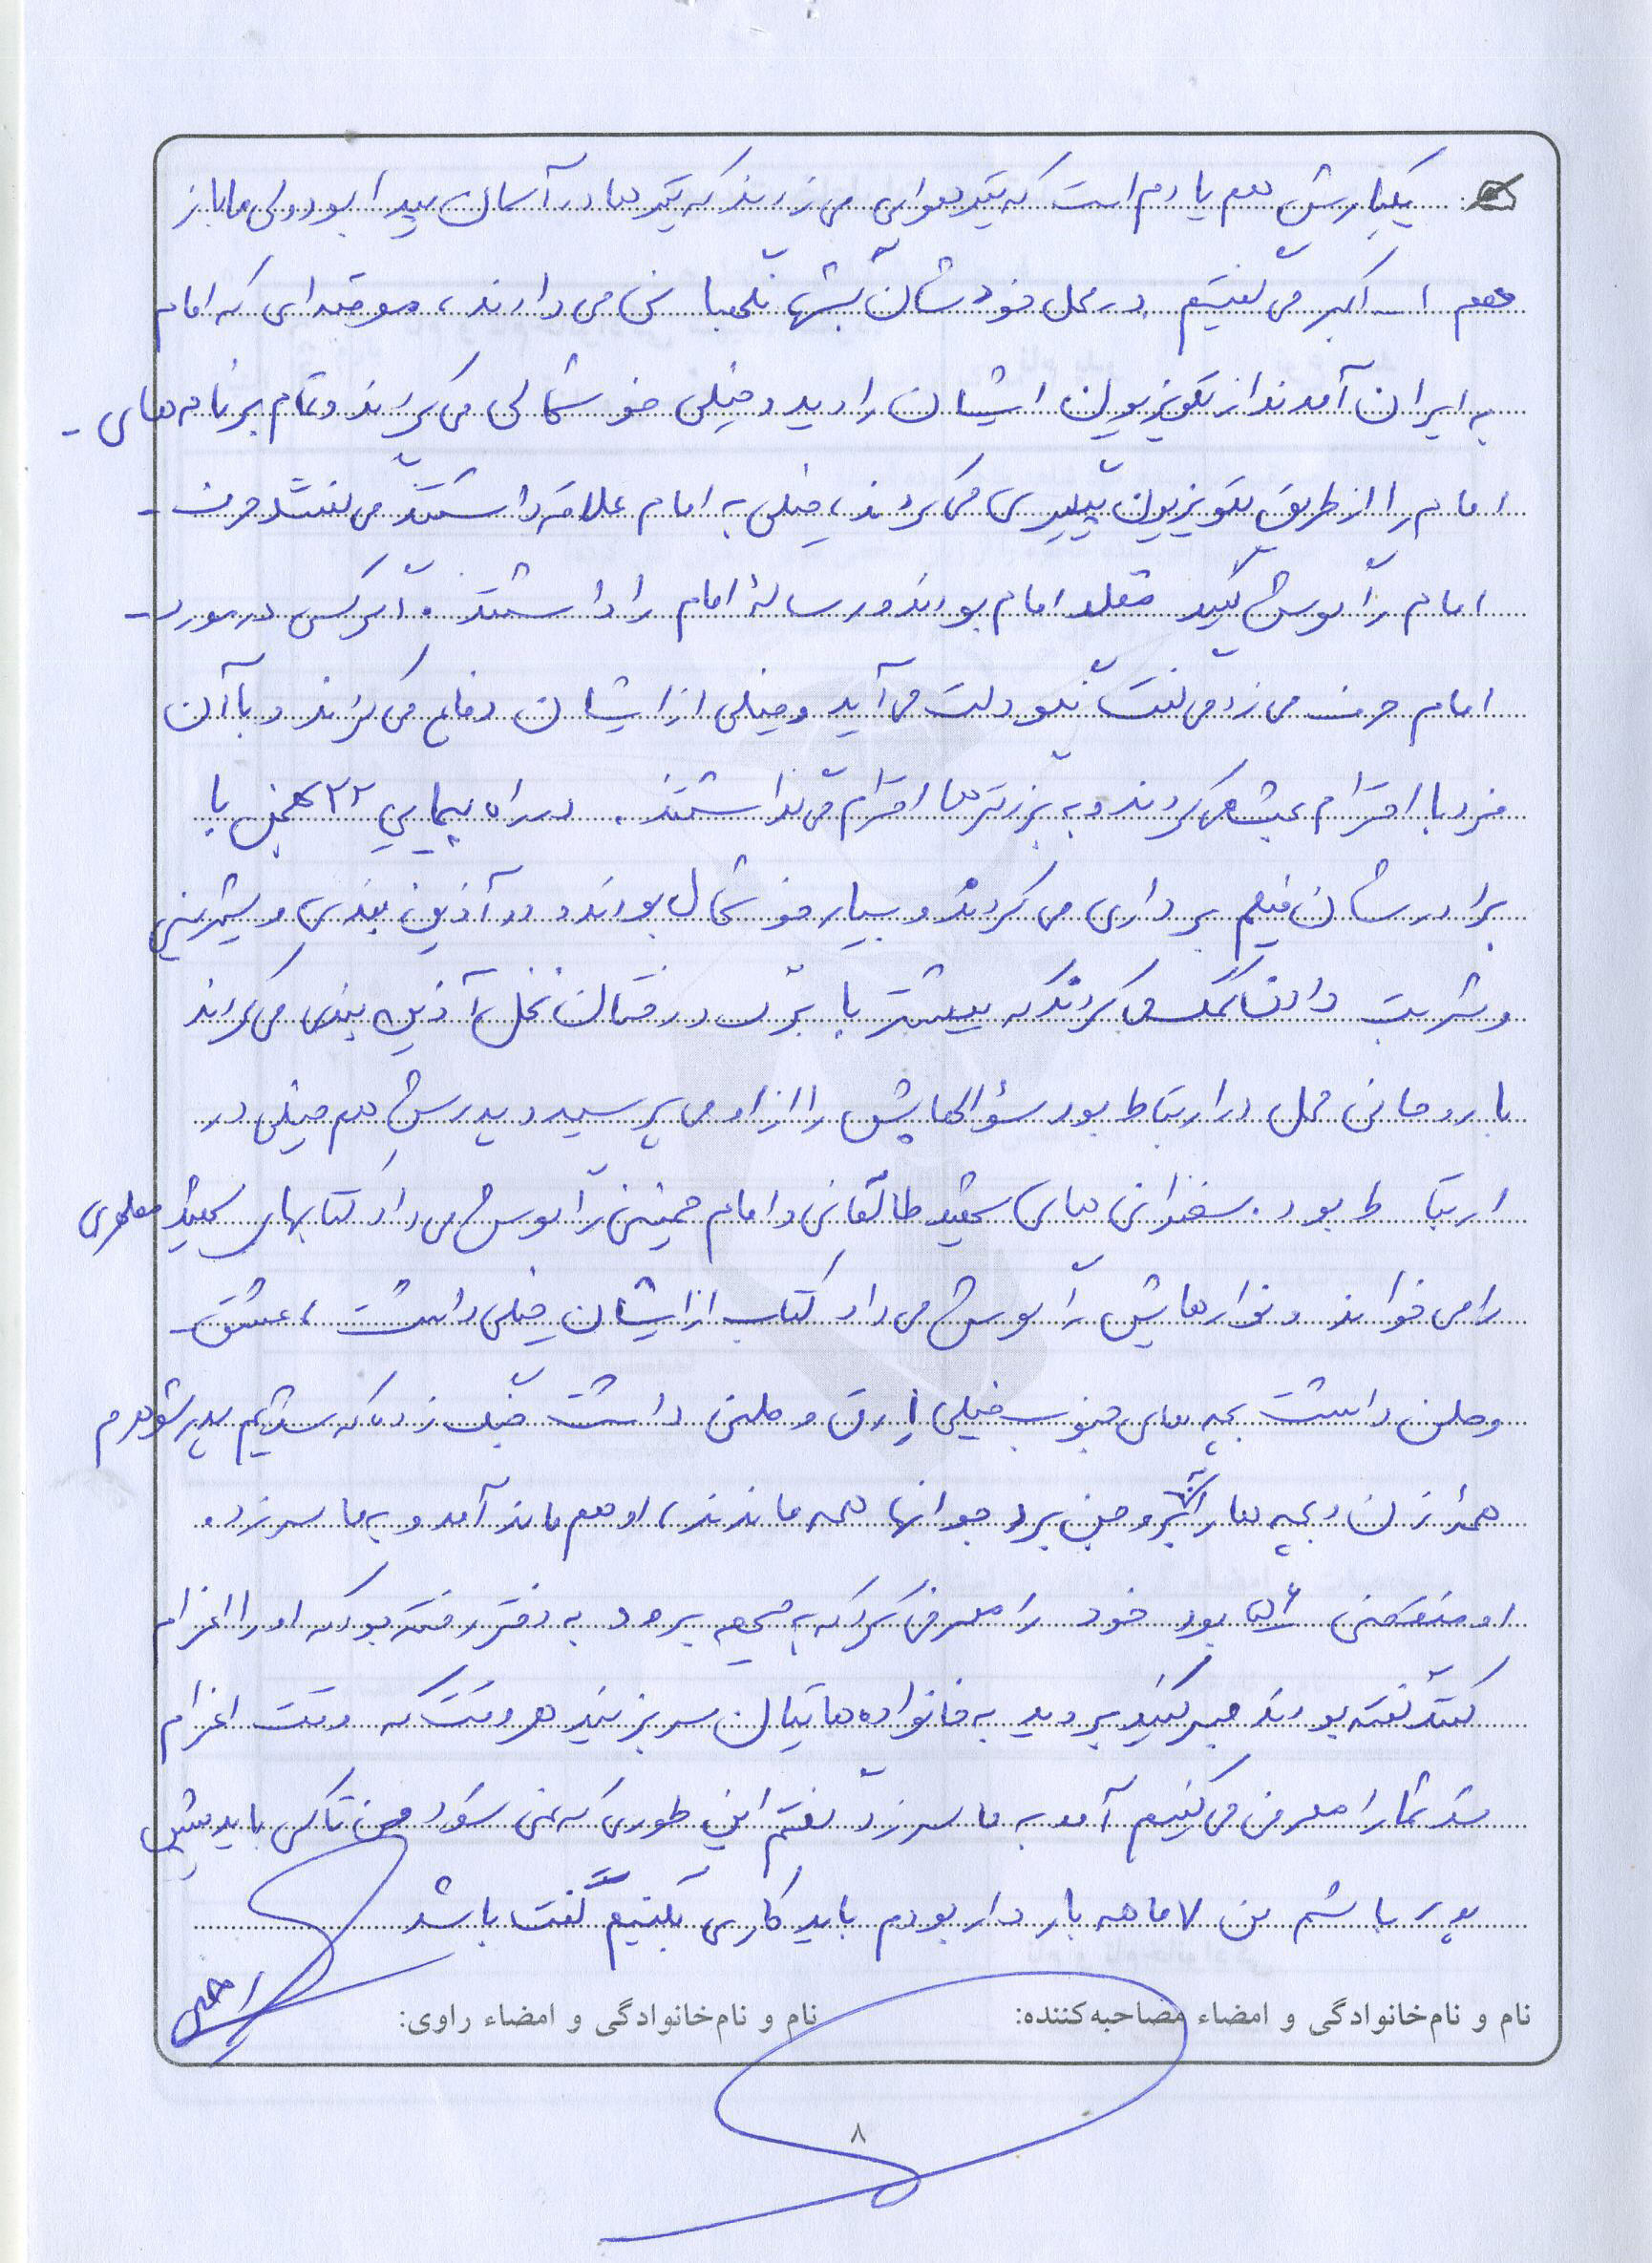 یکبارش هم یادم است که تیر هوایی می زدند که تیرها در آسمان پیدا بود ولی ما باز
هم ا... اکبر می گفتیم. در محل خودشان شبها نگهبانی می دادند، موقعه ای که امام
به ایران آمدند از تلویزیون ایشان را دید و خیلی خوشحالی می کردند و تمام برنامه های -
امام را از طریق تلویزیون پیگیری می کردند، خیلی به امام علاقه داشتند می گفتند حرف -
امام را گوش کنید مقلد امام بودند و رساله امام را داشتند و اگر کسی در مورد -
امام حرف می زد می گفت نگو دلت می آید و خیلی از ایشان دفاع می کردند و با آن
فرد با احترام بحث می کردند و به بزرگترها احترام می گذاشتند. در راه پیمایی ۲۲ بهمن با
برادرشان فیلم برداری می کردند و بسیار خوشحال بودند و در آذین بندی و شیرینی
و شربت دادن کمک می کردند که بیشتر با برگ درختان نخل آذین بندی می کردند
با روحانی محل در ارتباط بود سؤالهایش را از او می پرسید و پدرش هم خیلی در
ارتباط بود. سخنرانی های شهید طالقانی و امام خمینی را گوش می داد کتابهای شهید مطهری
را می خواند و نوارهایش را گوش می داد کتاب از ایشان خیلی داشت، عشق -
وطن داشت بچه های جنوب خیلی عرق وطنی داشت جنگ زده که شدیم پدر شوهرم
همه زن و بچه ها را برد جوانها همه ماندند، او هم ماند آمد و به ما سر زد.
او منقضی ۵۶ بود خود را معرفی کرد که به جبهه برود به دفتر رفته بود که او را اعزام
کنند گفته بودند صبر کنید بروید به خانواده هایتان سر بزنید هر وقت که وقت اعزام
شد شما را معرفی می کنیم آمد به ما سر زد گفتم این طوری که نمی شود من تا کی باید پیش
پدر باشم من ۷ ماهه باردار بودم باید کاری بکنیم گفت باشد
نام و نام‌خانوادگی و امضاء مصاحبه‌کننده: نام و نام‌خانوادگی و امضاء راوی:
۸